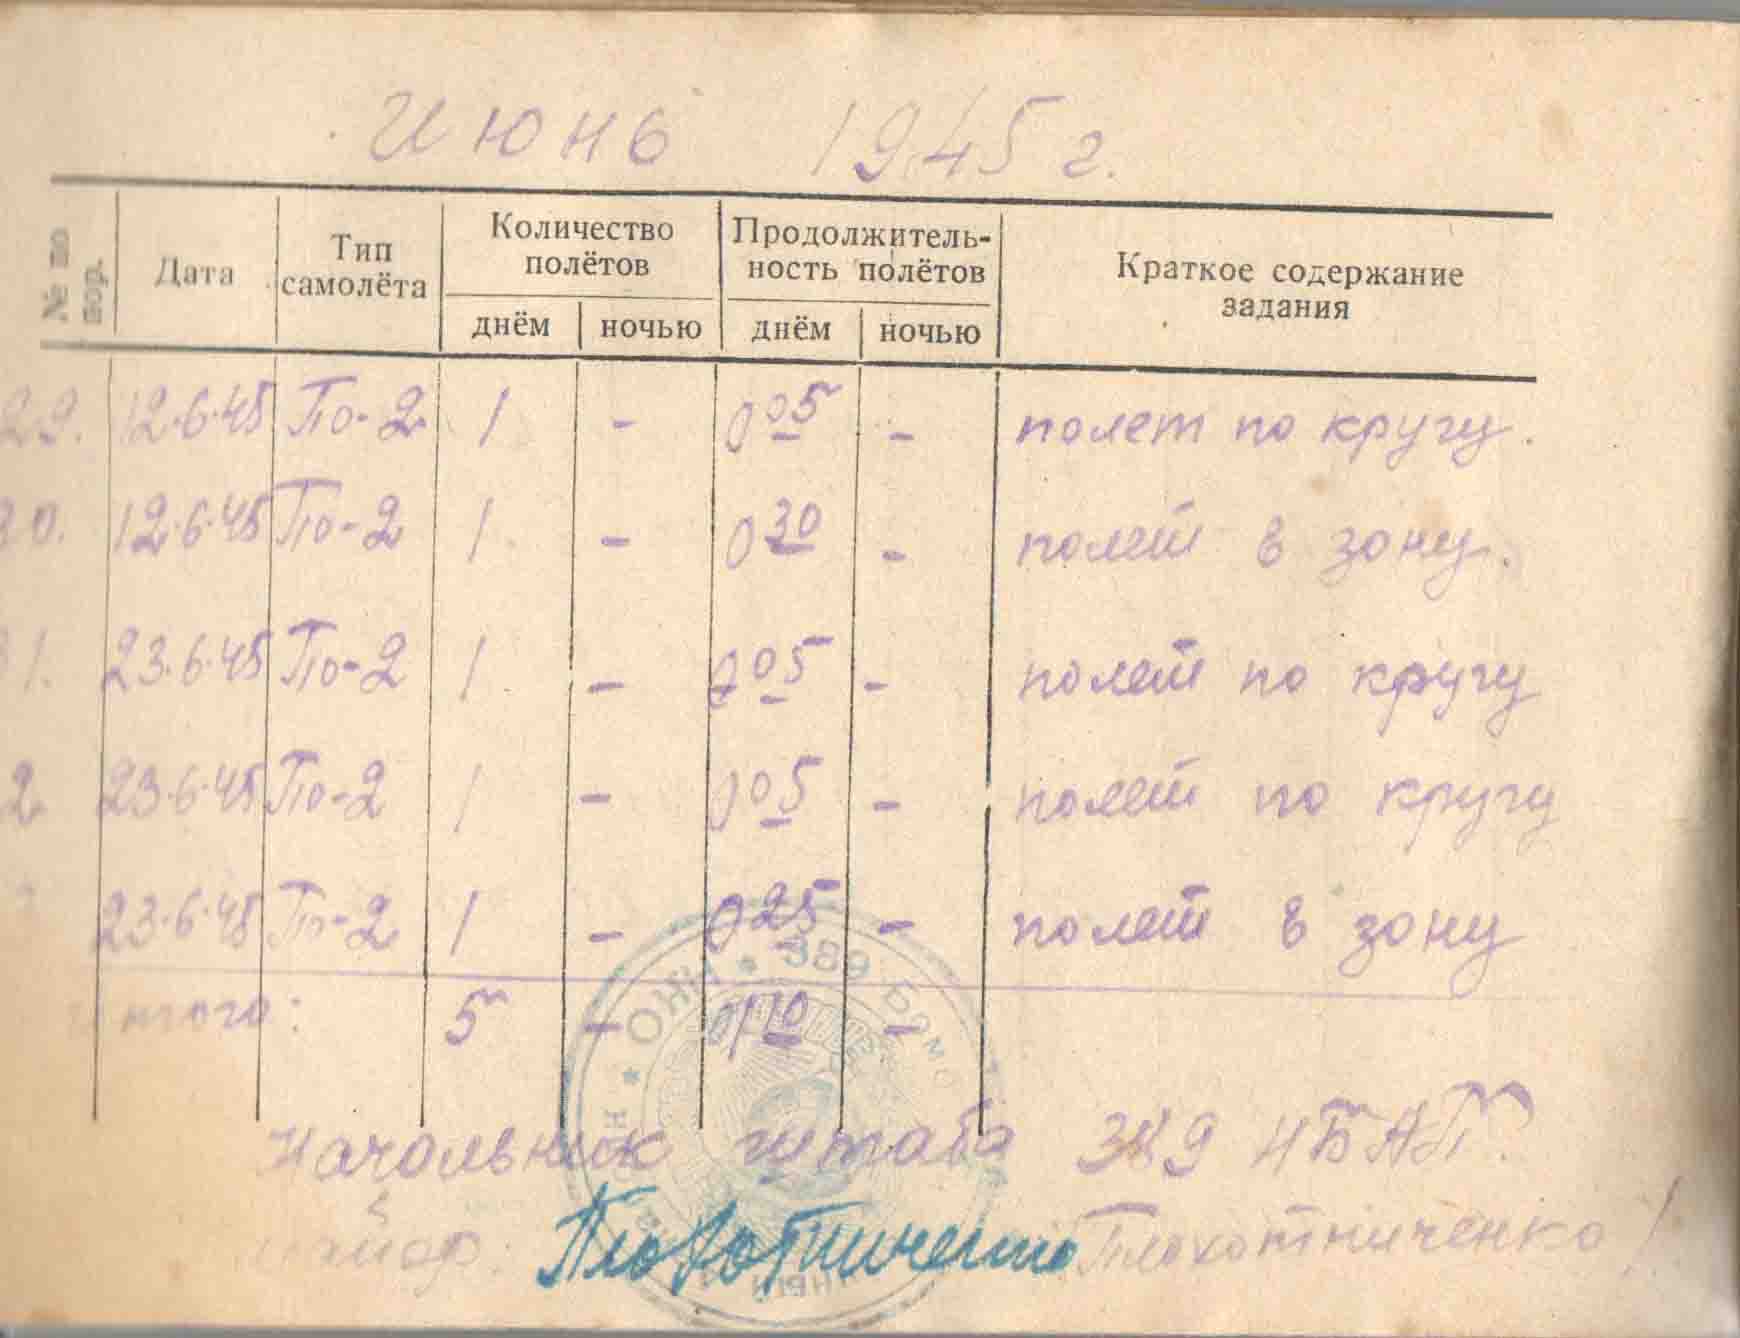 Июнь 1945 г.
№ по пор. Дата Тип самолёта Количество полётов Продолжитель-ность полётов Краткое содержание задания
днём ночью днём ночью
29. 12.6.45 По-2 1 - 0 05 - полет по кругу.
30. 12.6.45 По-2 1 - 0 30 - полет в зону.
31. 23.6.45 По-2 1 - 0 05 - полет по кругу
2 23.6.45 По-2 1 - 0 05 - полет по кругу
23.6.45 По-2 1 - 0 25 - полет в зону
итого: 5 - 01 10 -
* ОНН * 389 Бом
Начальник штаба 389 НБАП.
майор: Плохотниченко /Плохотниченко/